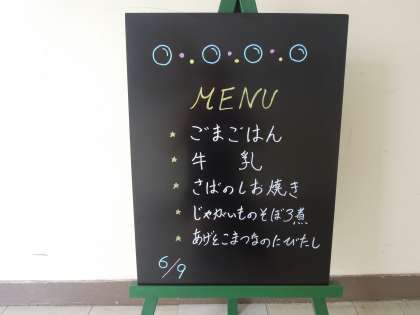 MENU
ごまごはん
牛 乳
さばのしお焼き
じゃがいものそぼろ煮
あげとこまつなのにびたし
6/9